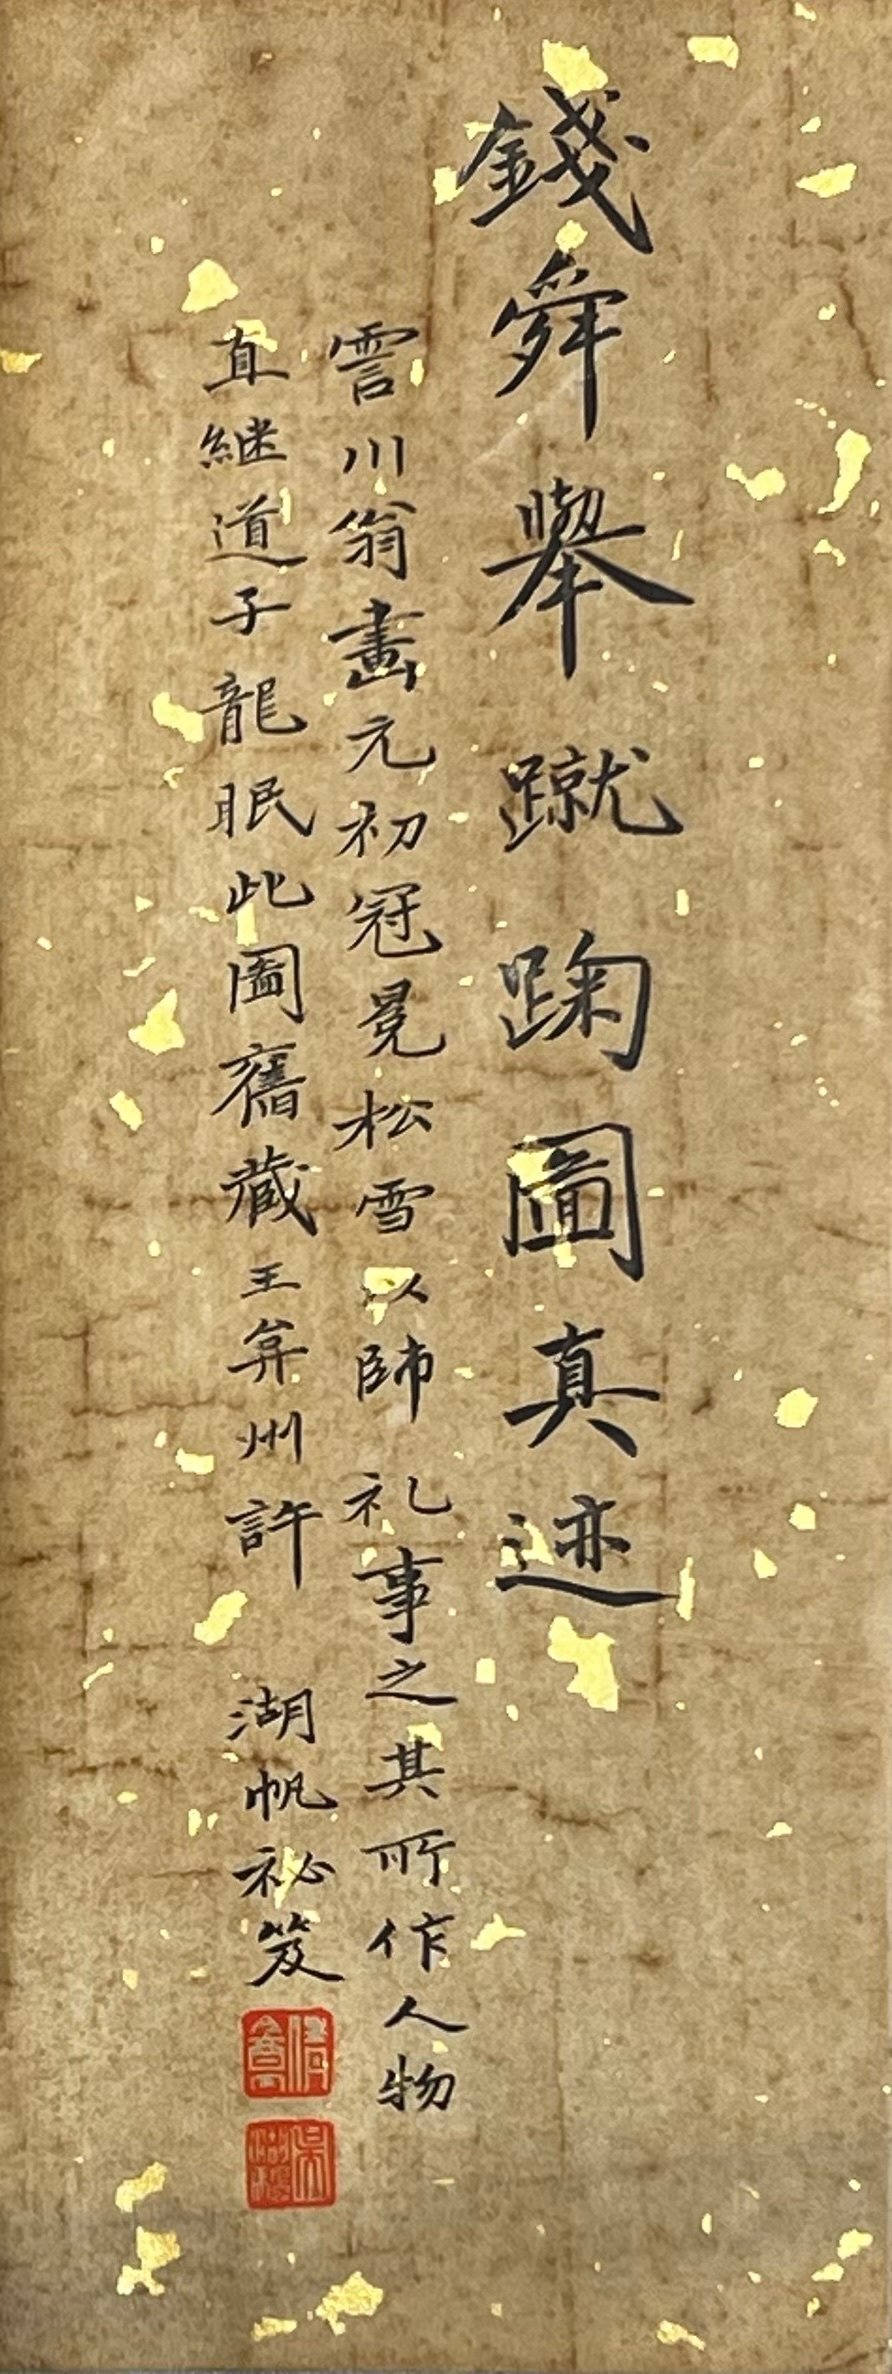 錢舜舉蹴踘圖真迹
霅川翁畫元初冠冕松雪以師礼事之其所作人物
直継道子龍眠此圖舊藏王弇州許 湖帆祕笈